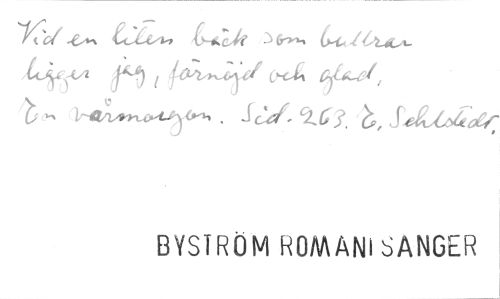 Vid en liten bäck som bullrar
ligger jag, förnöjd och glad,
En vårmorgon. Sid. 263. E. Sehlstedt.
BYSTRÖM ROMANI SANGER